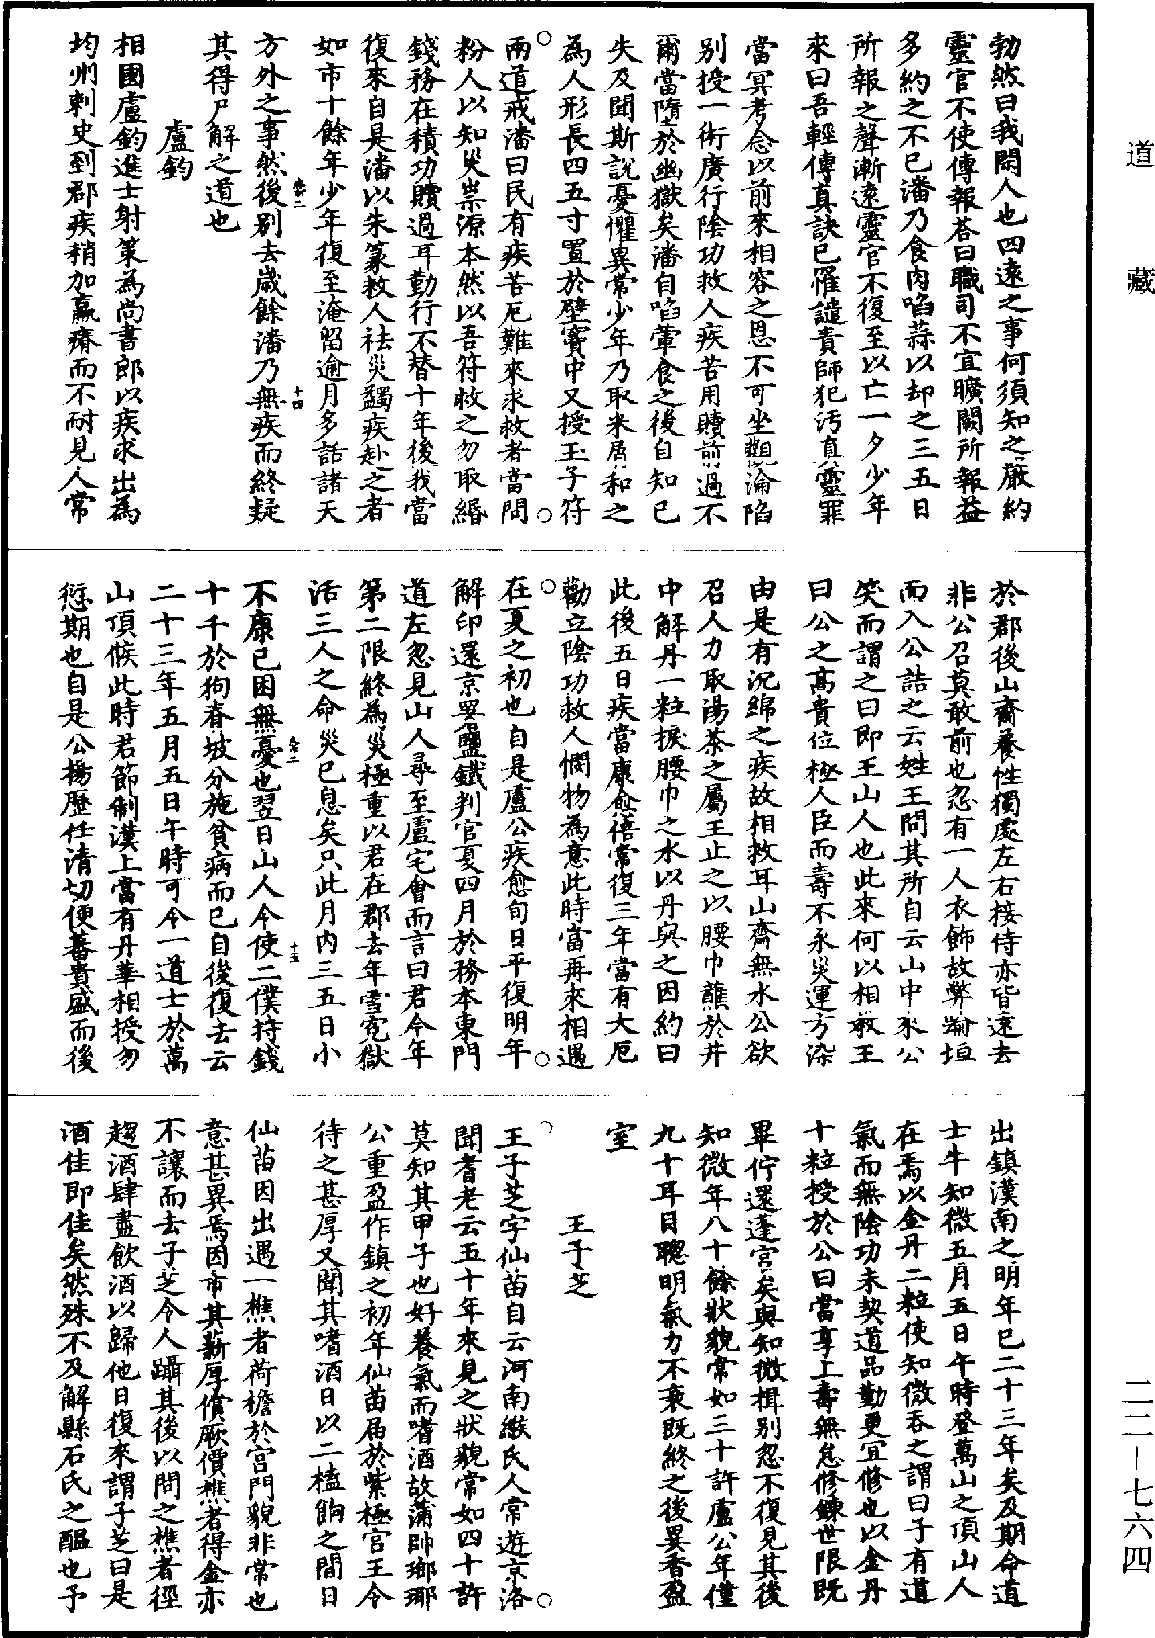 道藏
勃然曰我閑人也四遠之事何須知之嚴約
靈官不使傳報荅曰職司不宜曠闕所報益
多約之不已潘乃食肉啗蒜以却之三五日
所報之聲漸遠靈官不復至以亡一夕少年
來曰吾輕傳真訣已罹譴責師犯污真靈罪
當冥考念以前來相容之恩不可坐觀淪陷
別授一術廣行陰功救人疾苦用贖前過不
爾當墮於幽獄矣潘自啗葷食之後自知已
失及聞斯說憂懼異常少年乃取米屑和之
為人形長四五寸置於壁竇中又授玉子符
兩道戒潘曰民有疾苦厄難來求救者當問
粉人以知災祟源本然以吾符救之勿取緡
錢務在積功贖過耳勤行不替十年後我當
復來自是潘以朱篆救人祛災蠲疾赴之者
如市十餘年少年復至淹留逾月多話諸天
方外之事然後別去歲餘潘乃無疾而終疑
其得尸解之道也
盧鈞
相國盧鈞進士射策為尚書郎以疾求出為
均州刺史到郡疾稍加羸瘠而不耐見人常
於郡後山齋養性獨處左右接侍亦皆遠去
非公召莫敢前也忽有一人衣飾故弊踰垣
而入公詰之云姓王問其所自云山中來公
笑而謂之曰即王山人也此來何以相敎王
曰公之高貴位極人臣而壽不永災運方染
由是有沉綿之疾故相救耳山齋無水公欲
召人力取湯茶之屬王止之以腰巾蘸於井
中解丹一粒捩腰巾之水以丹與之因約曰
此後五日疾當康愈倍常復三年當有大厄
勸立陰功救人憫物為意此時當再來相遇
在夏之初也自是盧公疾愈旬日平復明年
解印還京署鹽鐵判官夏四月於務本東門
道左忽見山人尋至盧宅會而言曰君今年
第二限終為災極重以君在郡去年雪冤獄
活三人之命災已息矣只此月內三五日小
不康已困無憂也翌日山人令使二僕持錢
十千於狗脊坡分施貧病而已自後復去云
二十三年五月五日午時可令一道士於萬
山頂候此時君節制漢上當有丹華相授勿
愆期也自是公揚歷任清切便蕃貴盛而後
出鎮漢南之明年已二十三年矣及期命道
士牛知微五月五日午時登萬山之頂山人
在焉以金丹二粒使知微吞之謂曰子有道
氣而無陰功未契道品勤更宜修也以金丹
十粒授於公曰當享上壽無怠修鍊世限既
畢佇還蓬宮矣與知微揖別忽不復見其後
知微年八十餘狀貌常如三十許盧公年僅
九十耳目聰明氣力不衰既終之後異香盈
室
王子芝
王子芝字仙苗自云河南緱氏人常遊京洛
聞耆老云五十年來見之狀貌常如四十許
莫知其甲子也好養氣而嗜酒故蒲帥瑯琊
公重盈作鎮之初年仙苗居於紫極宮王令
待之甚厚又聞其嗜酒日以二榼餉之間日
仙苗因出遇一樵者荷檐於宮門貌非常也
意甚異焉因市其薪厚償厥價樵者得金亦
不讓而去子芝令人躡其後以問之樵者徑
趨酒肆盡飲酒以歸他日復來謂子芝曰是
酒佳即佳矣然殊不及解縣石氏之醞也予
二二－七六四